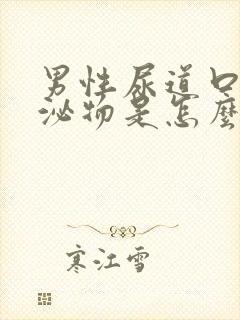 男性尿道口
泌物是怎麼
寒江雪